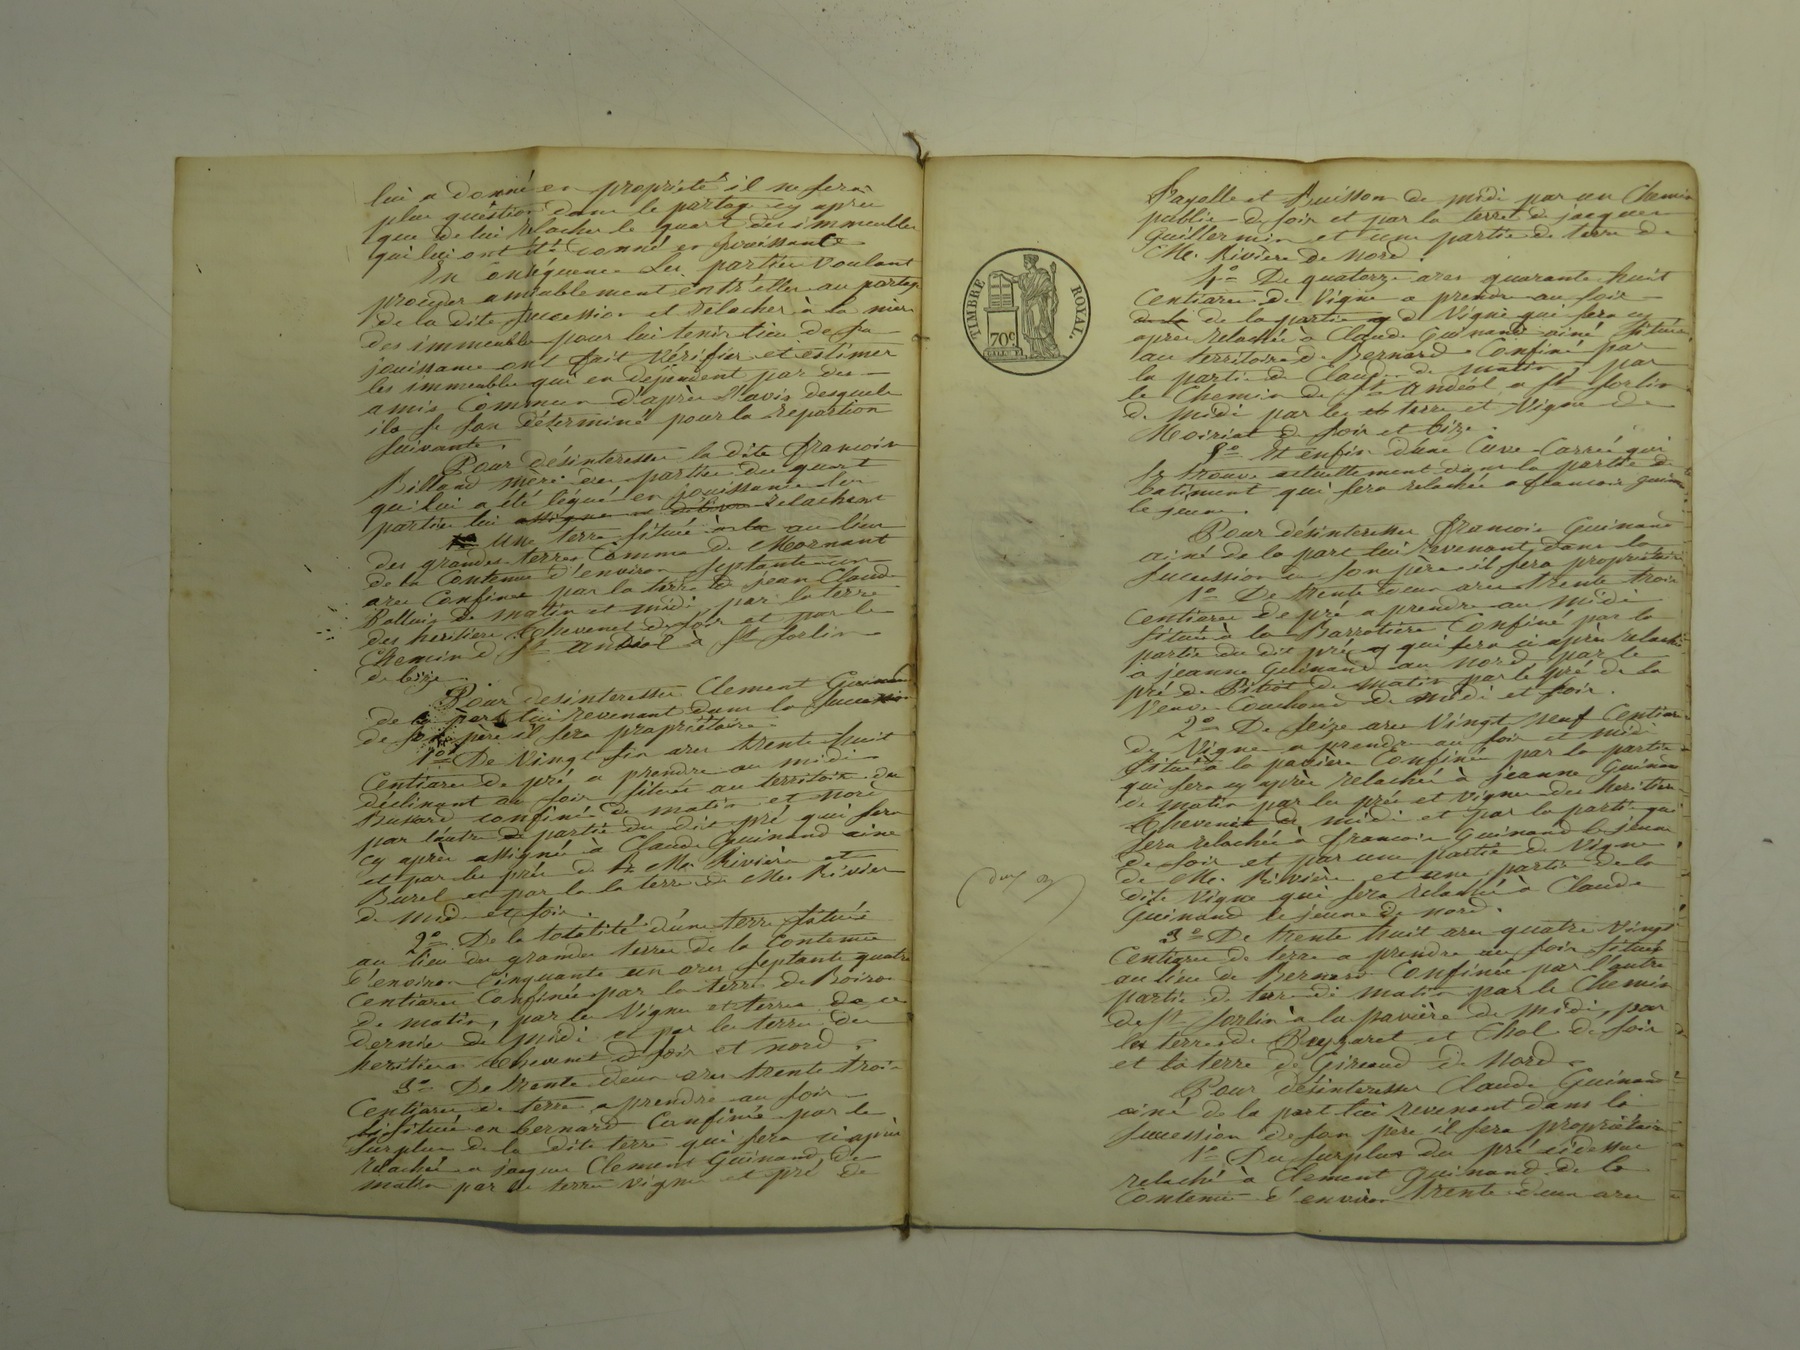 lui a donné en propriété il ne sera
plus question dans le partage cy après
que de lui relacher le quart des immeubles
qui lui ont été donné en jouissance
En Conséquence les parties voulant
proceder amiablement entr'elles au partage
de la dite succession et relacher à la mère
des immeuble pour lui tenir lieu de sa
jouissance ont fait vérifier et estimer
les immeubles qui en dépendent par des
amis Commun d'après l'avis desquels
ils se son déterminé pour la repartion
suivante.
Pour désinteresser la dite francoise
Billaud mère des parties du quart
qui lui a été légué en jouissance les
parties lui assigne et relachent
une terre située à la au lieu
des grandes terres Comme de Mornant
de la Contenue d'environ septante un
ares Confinée par la terre de jean Claude
de matin et midi par la terre
des heritiers Thevenet de soir et par le
Chemin de St andéol à St Sorlin
de bize.
Pour desinteresser Clement Guinand
de la part lui revenant dans la succession
de son père il sera propriétaire
1o De Vingt six ares trente huit
Centiares de pré a prendre au midi
déclinant au soir situé au territoire du
Buvard confinée de matin et nord
par l'autre partie du dit pré qui sera
cy après assigné à Claude Guinand ainé
et par les prés de Mr Rivière et
Burel et par la la terre de Mr Rivier
de midi et soir.
2o De la totalité d'une terre située
au lieu des grandes terres de la Contenue
d'environ Cinquante un ares septante quatre
Centiares Confinée par la terre de Boiron
de matin, par les Vignes et terres de ce
dernier de midi et par les terres des
heritiers Thevenet de soir et nord.
3o De trente deux ares trente trois
Centiares de terre a prendre au soir
située en bernard Confinée par le
surplus de la dite terre qui sera ci après
relachée a jacques Clement Guinand, de
matin par les terres vignes et pré de
TIMBRE ROYAL.
70c
Fayolle et Buisson de midi par un Chemin
public de soir et par la terre de jacques
Guillermin et une partie de terre de
Mr. Riviere de nord.
4o De quatorze ares quarante huit
Centiares de Vigne a prendre au soir
de la de la partie de Vigne que sera cy
après relachée à Claude Guinand ainé située
au territoire de Bernard Confiné par
la partie de Claude de matin, par
le Chemin de St Andéol a St Sorlin
de midi par les terre et Vigne de
Moiriat de soir et bize.
5o Et enfin d'une Cuve Carrée qui
se trouve actuellement dans la partie de
batiment qui sera relachée a francois guinand
le jeune.
Pour désinteresser francois Guinand
ainé de la part lui revenant dans la
succession de son père il sera propriétaire
1o De trente deux ares trente trois
Centiares de pré a prendre au midi
située à la Barrotière Confiné par la
partie du dit pré qui sera ci après relachée
a jeanne Guinand au nord par le
pré de Pitiot de matin par le pré de la
Veuve Couchoud de midi et soir.
2o De seize ares Vingt neuf Centiares
de Vigne a prendre au soir et midi
situé à la pavière Confinée par la partie
qui sera cy après relachée à jeanne Guinand
de matin par les prés et vignes des heritiers
Thevenet de midi et par la partie qui
sera relachée à francois Guinand le jeune
de soir et par une partie de Vigne
de Mr. Rivière et une partie de la
dite Vigne qui sera relachée à Claude
Guinand le jeune de nord.
3o De trente huit ares quatre Vingt
Centiares de terre a prendre au soir située
au lieu de Bernard Confinée par l'autre
partie de terre de matin par le Chemin
de St Sorlin à la pavière de midi, par
les terres de et Chol de soir
et la terre de Giraud de Nord.
Pour désinteresser Claude Guinand
ainé de la part lui revenant dans la
succession de son père il sera propriétaire
1o Du surplus du pré cidessus
relaché à Clement Guinand de la
Contenue d'environ trente deux ares